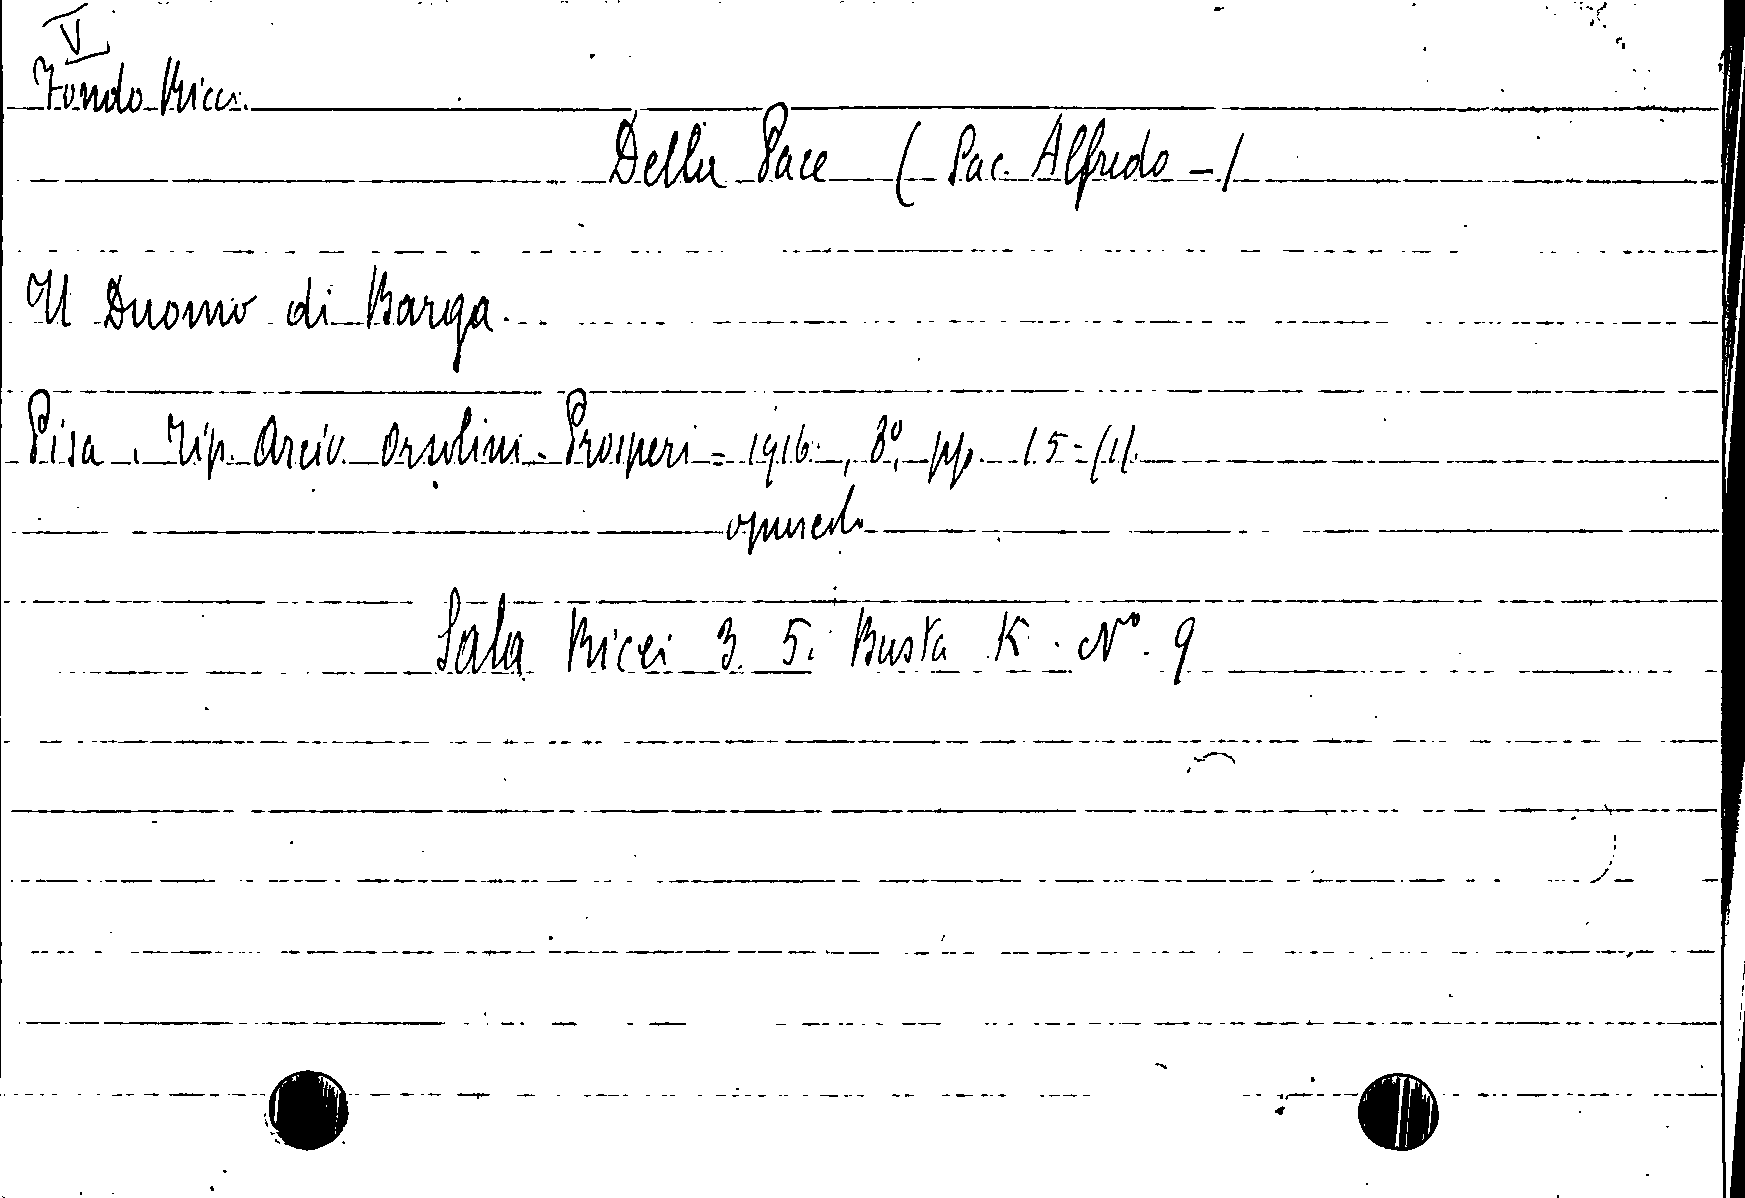 V
Fondo Ricci.
Della Pace (Sac. Alfredo -)
Il Duomo di Barga.
Pisa. Tip. Arciv. Orsolini-Prosperi = 1916., 8°, pp. 15-(1).
opuscolo
Sala Ricci 3. 5. Busta K. N° 9